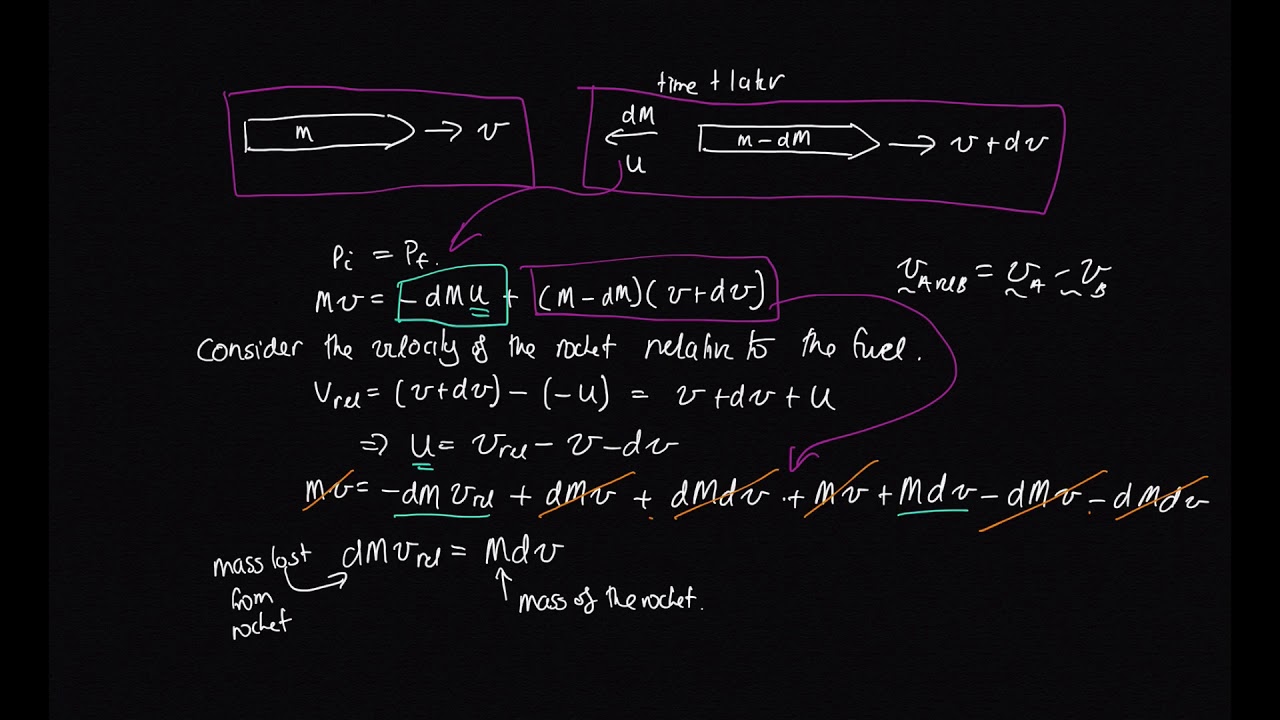 time t later
m → v
dM
u
m - dM → v + dv
Pi = Pf.
Mv = -dMu + (M-dM)(v+dv)
v A rel B = v A - v B
Consider the velocity of the rocket relative to the fuel.
Vrel = (v+dv) - (-u) = v + dv + u
⇒ u = vrel - v - dv
Mv = -dM vrel + dMv + dMdv + Mv + Mdv - dMv - dMdv
dM vrel = Mdv
mass lost
from
rocket
mass of the rocket.